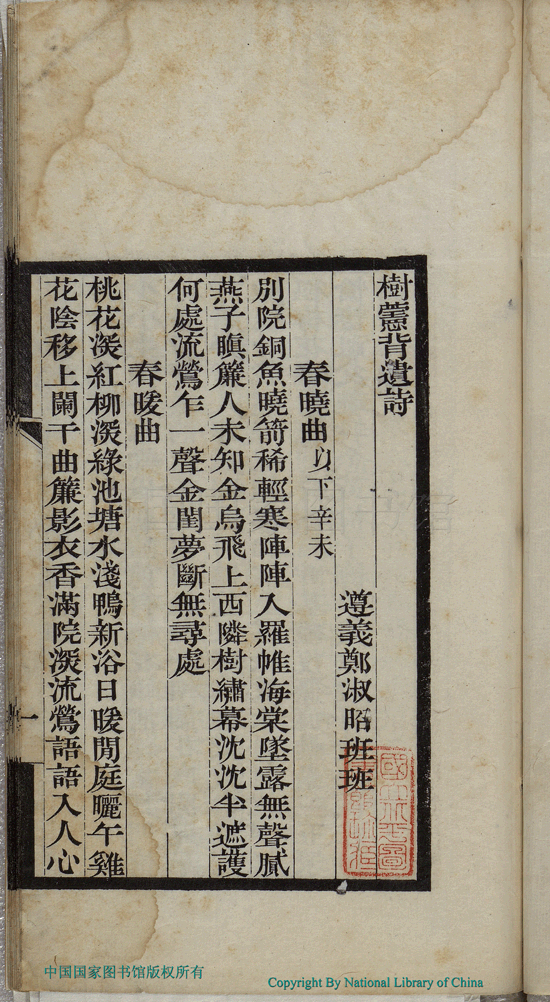 樹蘐背遺詩
遵義鄭淑昭班班
春曉曲以下辛未
別院銅魚曉箭稀輕寒陣陣入羅帷海棠墜露無聲膩
燕子瞋簾人未知金烏飛上西隣樹繡幕沈沈半遮護
何處流鶯乍一聲金閨夢斷無尋處
春暖曲
桃花深紅柳深綠池塘水淺鴨新浴日暖閒庭曬午雞
花陰移上闌干曲簾影衣香滿院深流鶯語語入人心
一
中国国家图书馆版权所有
Copyright By National Library of China